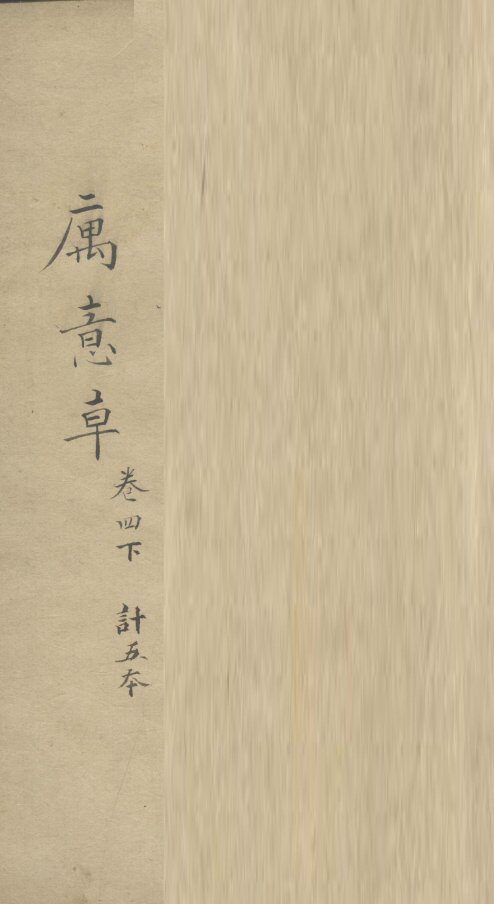 庽意草
卷四下 計五本